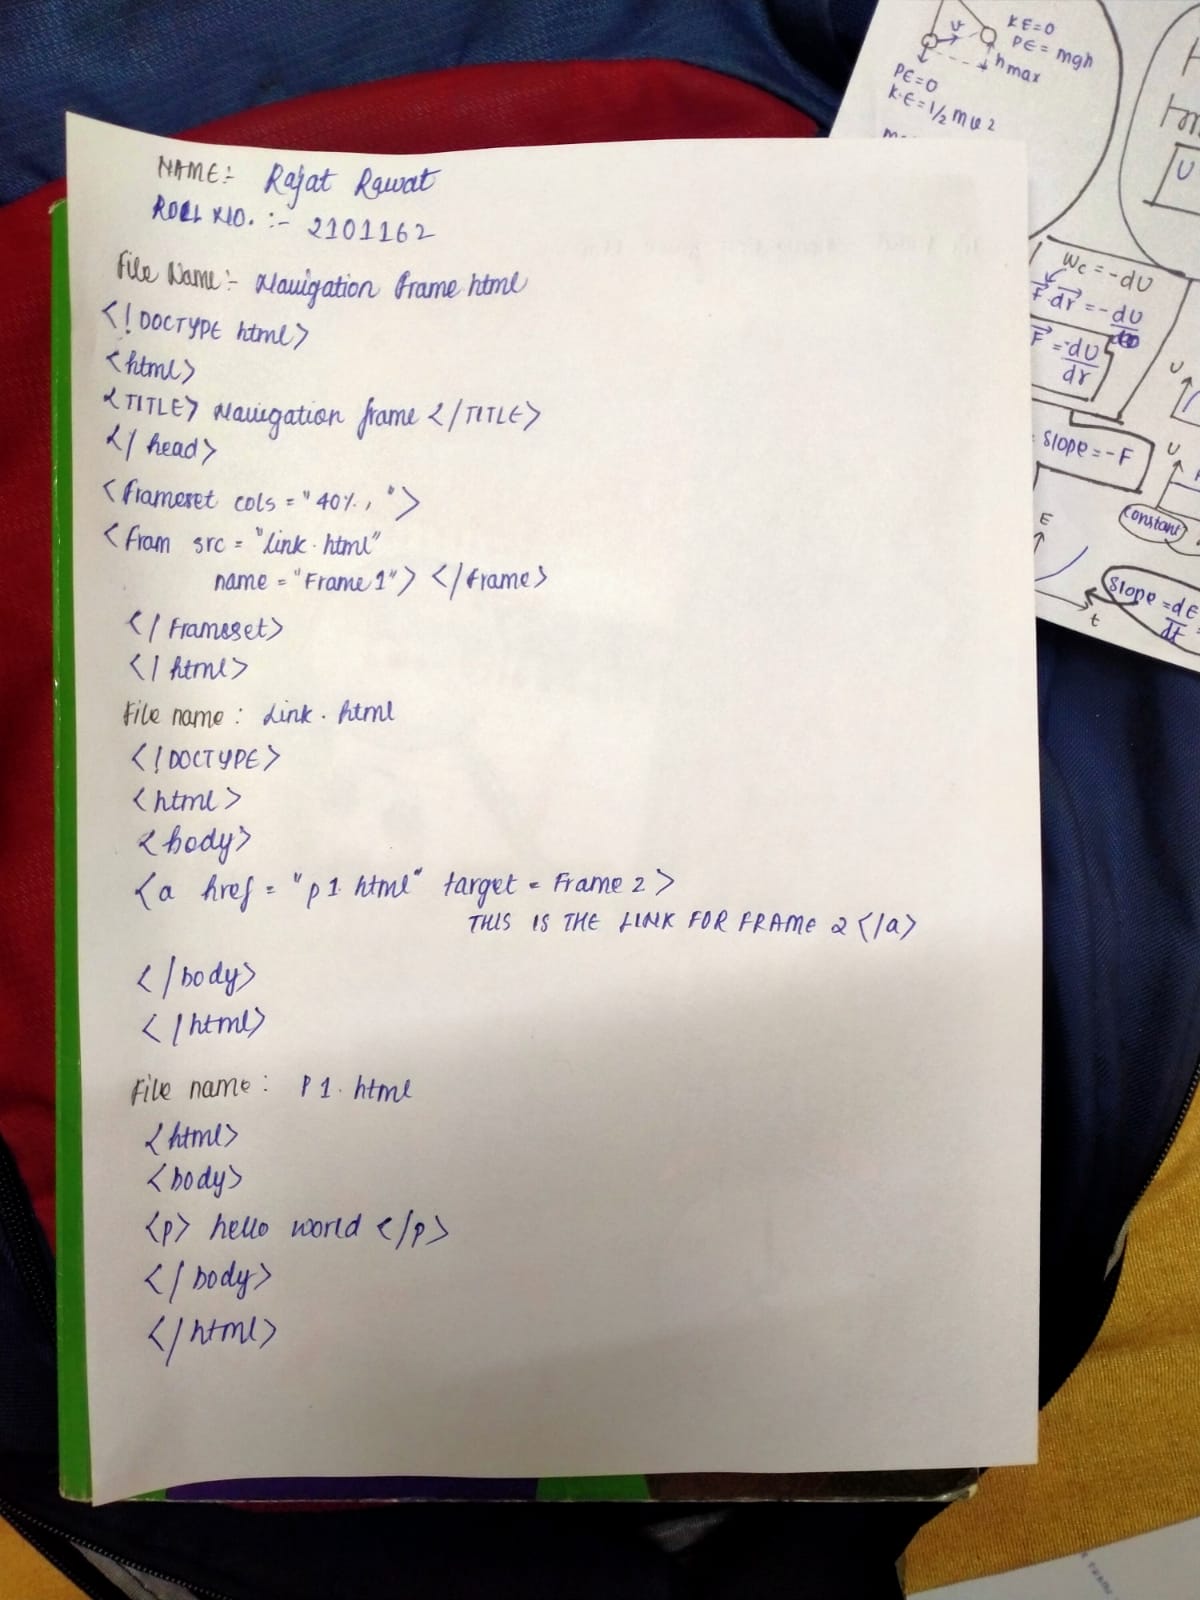 NAME:- Rajat Rawat
ROLL NO. :- 2101162
File Name:- Navigation Frame html
<!DOCTYPE html>
<html>
<TITLE> Navigation frame </TITLE>
</head>
<frameset cols="40%, ">
<fram src = "link.html"
name = "Frame 1"> </frame>
</frameset>
</html>
File name: Link.html
<!DOCTYPE>
<html>
<body>
<a href = "p1.html" target = Frame 2>
THIS IS THE LINK FOR FRAME 2 </a>
</body>
</html>
File name: P1.html
<html>
<body>
<p> hello world </p>
</body>
</html>
v
KE=0
PE = mgh
hmax
PE=0
K.E = 1/2 mv2
U
Wc = -dU
F dr = -dU
F = -dU/dr
slope = -F
U
U
constant
E
t
slope = dE/dt =